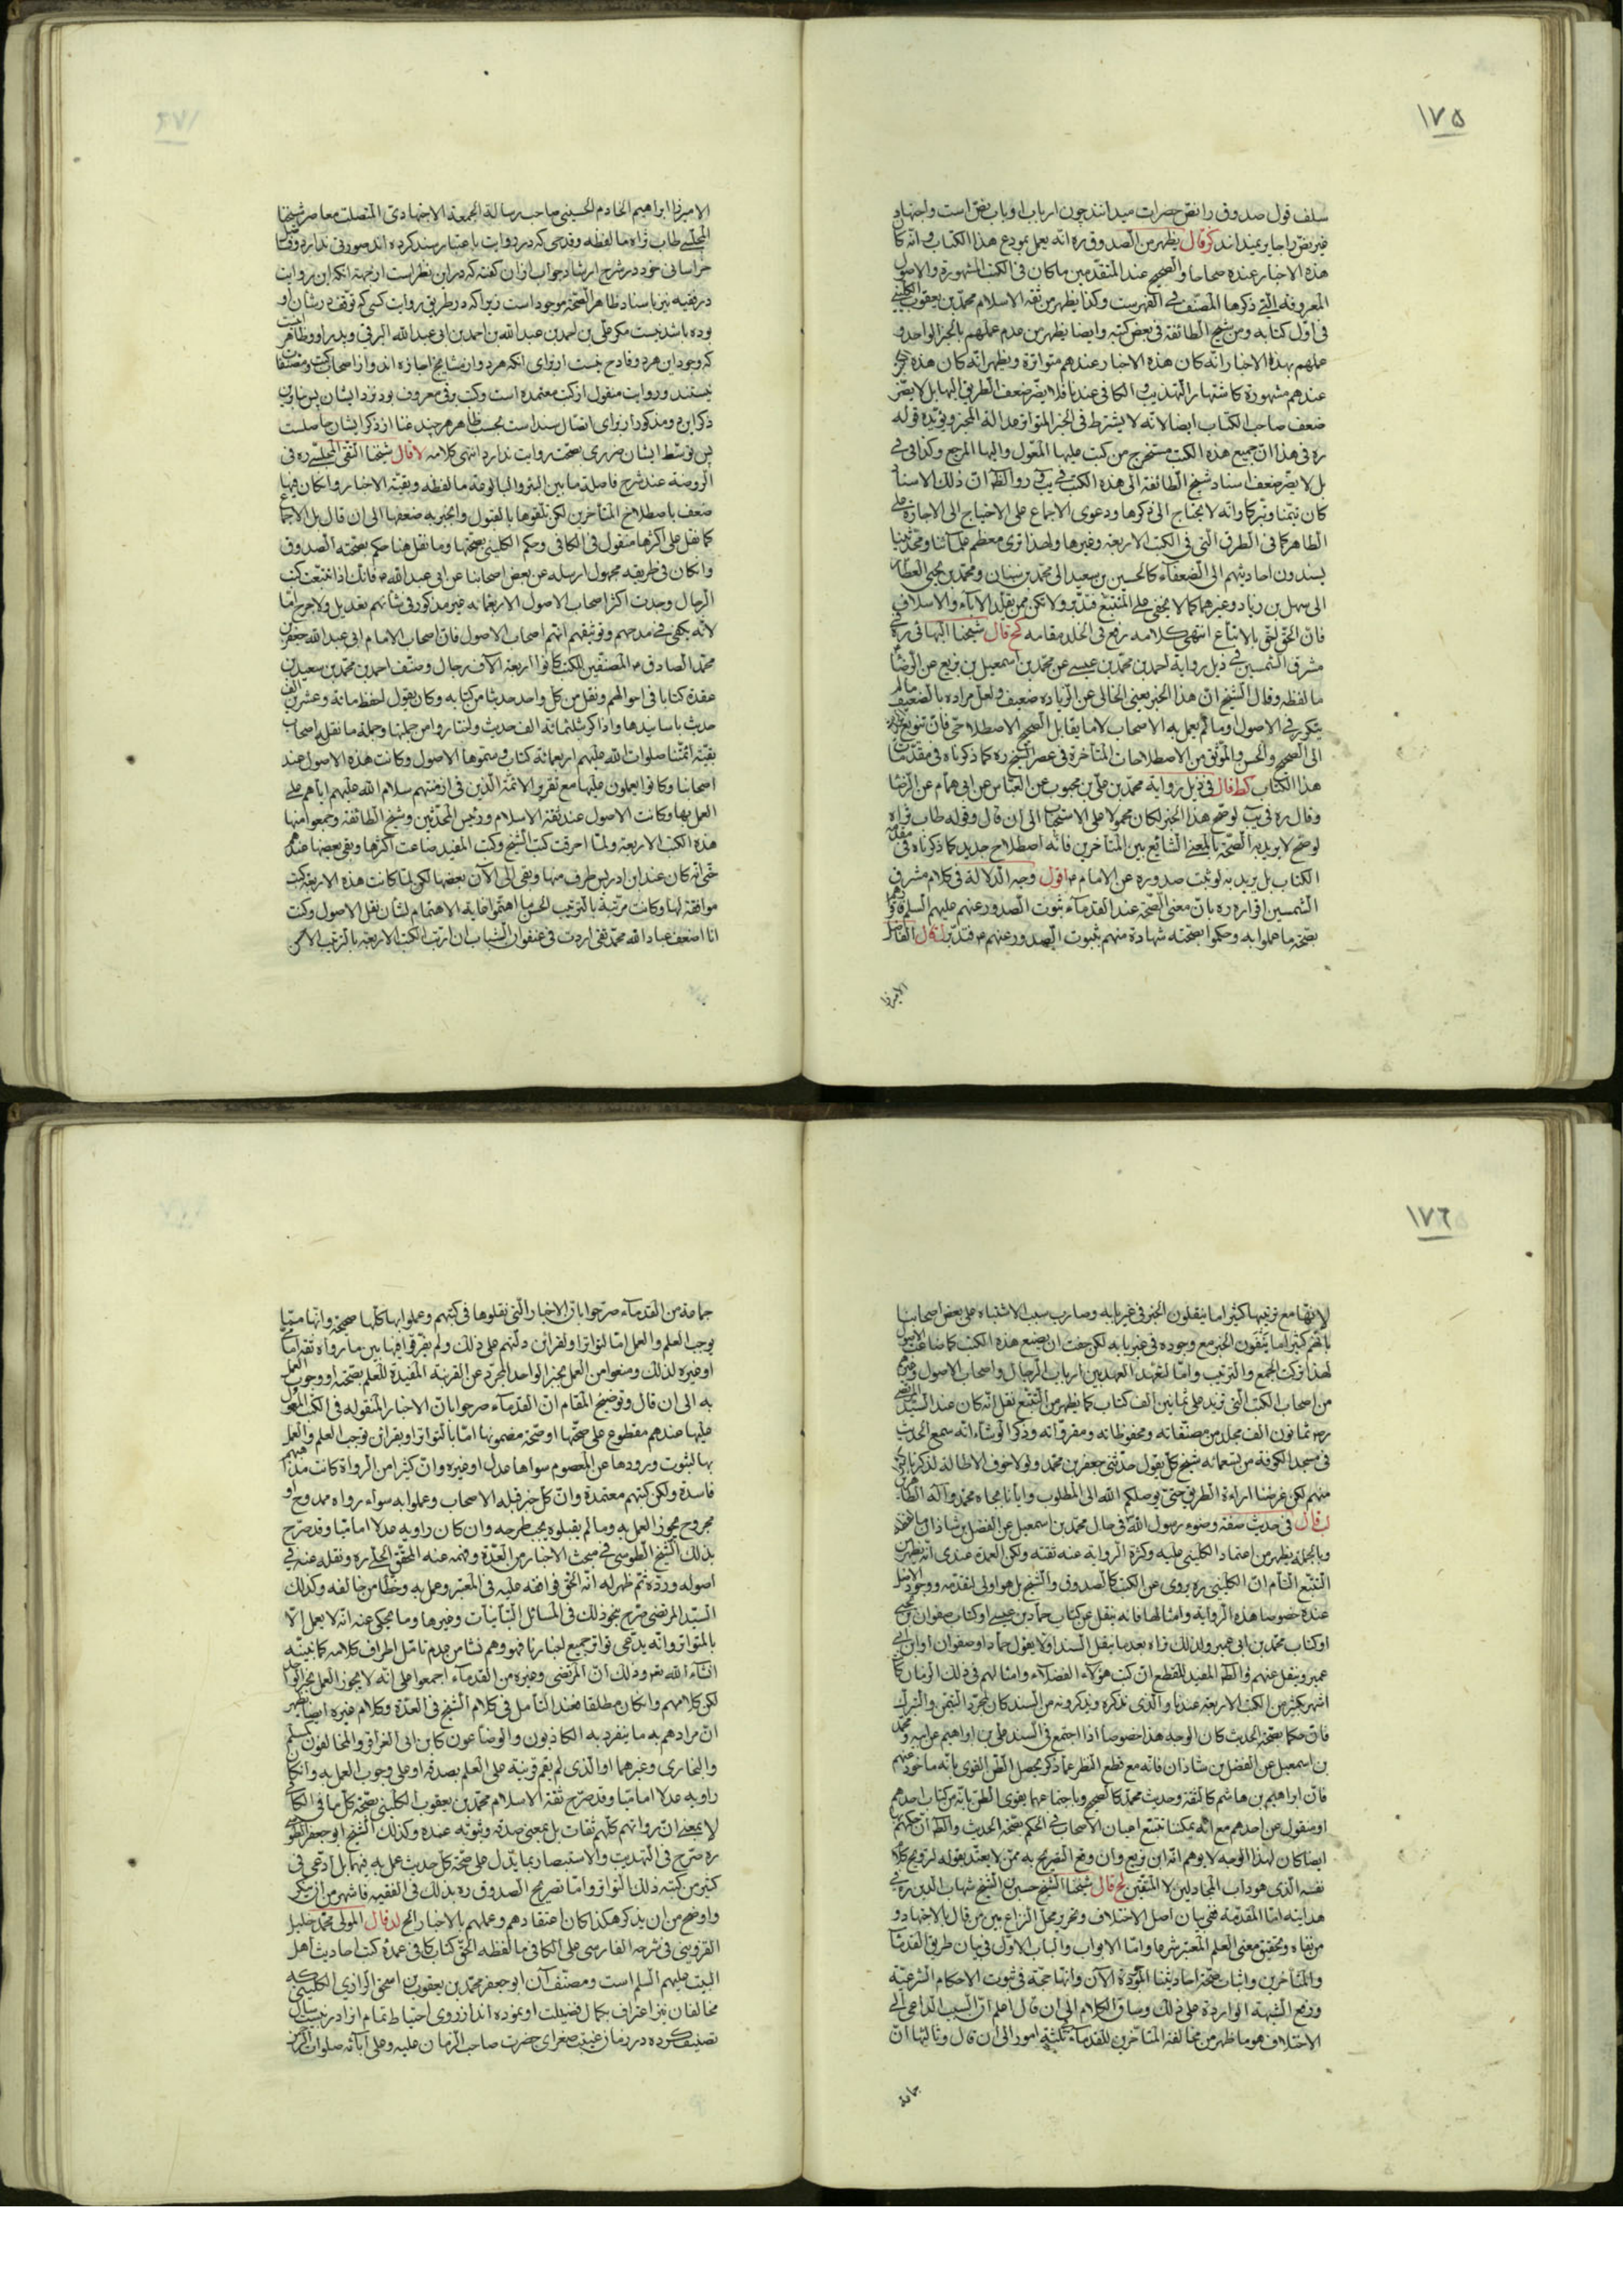 ١٧٥
سلف قول صدوق را نص حضرات میدانند چون ارباب او باب نص است واجتهاد
غیر نص را جایز نمیدانند کز قال یظهر من الصدوق ره انه یعمل بمودع هذا الکتاب وانه کا
هذه الاخبار عنده صحاحا والصحیح عند المتقدمین ما کان فی الکتب المشهورة والاصول
المعروفة التی ذکرها المصنف فی الفهرست وکذا یظهر من ثقة الاسلام محمد بن یعقوب الکلینی
فی اول کتابه ومن شیخ الطائفة فی بعض کتبه وایضا یظهر من عدم عملهم بالخبر الواحد و
عملهم بهذه الاخبار انه کان هذه الاخبار عندهم متواترة ویظهر انه کان هذه
عندهم مشهورة کاشتهار التهذیب والکافی عندنا فلا یضر ضعف الطریق الیها بل لا یضر
ضعف صاحب الکتاب ایضا لانه لا یشترط فی الخبر المتواتر عدالة المخبر ویؤیده قوله
ره فی هذا ان جمیع هذه الکتب مستخرج من کتب علیها المعول والیها المرجع وکذا فی
بل لا یضر ضعف اسناد شیخ الطائفة الی هذه الکتب فی یب و ر والظ ان ذلک الاسنا
کان تیمنا وتبرکا وانه لا یحتاج الی ذکرها ودعوی الاجماع علی الاحتیاج الی الاجازة علی
الظاهر کما فی الطرق التی فی الکتب الاربعة وغیرها ولهذا تری معظم علمائنا ومحدثینا
یسندون احادیثهم الی الضعفاء کالحسین بن سعید الی محمد بن سنان ومحمد بن یحیی العطا
الی سهل بن زیاد وغیرهما کما لا یخفی علی المتتبع فتدبر ولا تکن ممن یقلد الاباء والاسلاف
فان الحق احق بالاتباع انتهی کلامه رفع فی الخلد مقامه کح قال شیخنا البهائی ره فی
مشرق الشمسین فی ذیل روایة احمد بن محمد بن عیسی عن محمد بن اسمعیل بن بزیع عن الرضا
ما لفظه وقال الشیخ ان هذا الخبر یعنی الخالی عن الزیادة ضعیف ولعل مراده بالضعیف ما لم
یتکرر فی الاصول او ما لم یعمل به الاصحاب لا ما یقابل الصحیح الاصطلاحی فان تنویع
الی الصحیح والحسن والموثق من الاصطلاحات المتأخرة فی عصر الشیخ ره کما ذکرناه فی مقدمات
هذا الکتاب کط قال فی ذیل روایة محمد بن علی بن محبوب عن العباس عن ابی همام عن الرضا
وقال ره فی یب لو صح هذا الخبر لکان محمولا علی الاستحباب الی ان قال وقوله طاب ثراه
لو صح لا یرید به الصحة بالمعنی الشایع بین المتأخرین فانه اصطلاح جدید کما ذکرناه فی مقدمة
الکتاب بل یرید به لو ثبت صدوره عن الامام ع اقول وجه الدلالة فی کلام مشرق
الشمسین اقراره ره بان معنی الصحة عند القدماء ثبوت الصدور عنهم علیهم السلم
بصحة ما عملوا به وحکموا بصحته شهادة منهم بثبوت الصدور عنهم ع فتدبر ل قال الفاضل
الامیرزا
الامیرزا ابراهیم الخادم الحسینی صاحب رسالة الجمعة الاجتهادی المتصلت معاصر شیخنا
المجلسی طاب ثراه ما لفظه وقدحی که در روایت باعتبار سند کرده اند صورتی ندارد وفا
خراسانی خود در شرح ارشاد جواب از ان گفته که در این نظر است از جهة انکه این روایت
در فقیه نیز باسناد ظاهر الصحة موجود است زیرا که در طریق روایت کسی که توقف در شان او
بوده باشد نیست مگر علی بن احمد بن عبد الله بن احمد بن ابی عبد الله البرقی وپدر او وظاهر است
که وجود این هر دو قادح نیست از برای انکه هر دو از مشایخ اجازه اند واز اصحاب کتب ومصنفات
نیستند وروایت منقول از کتب معتمده است وکتب برقی معروف بوده نزد ایشان پس بنابراین
ذکر این دو مذکور از برای اتصال سند است بحسب ظاهر هر چند غنا از ذکر ایشان حاصلست
پس توسط ایشان ضرری بصحت روایت ندارد انتهی کلامه لا قال شیخنا التقی المجلسی ره فی
الروضة عند شرح فاصلة ما بین البئر والبالوعة ما لفظه وبقیة الاخبار وان کان فیها
ضعف باصطلاح المتأخرین لکن تلقوها بالقبول وانجبر به ضعفها الی ان قال بل الاجما
کما نقل علی اکثرها منقول فی الکافی وحکم الکلینی بصحتها وما نقل هنا حکم بصحته الصدوق
وان کان فی طریقه مجهول ارسله عن بعض اصحابنا عن ابی عبد الله ع فانک اذا تتبعت کتب
الرجال وجدت اکثر اصحاب الاصول الاربعمائة غیر مذکور فی شانهم تعدیل ولا جرح اما
لانه یکفی فی مدحهم وتوثیقهم انهم اصحاب الاصول فان اصحاب الامام ابی عبد الله جعفر بن
محمد الصادق ع المصنفین للکتب کانوا اربعة الآف رجال وصنف احمد بن محمد بن سعید بن
عقدة کتابا فی احوالهم ونقل من کل واحد حدیثا من کتابه وکان یقول احفظ مائة وعشرین الف
حدیث باسانیدها واذاکر بثلثمائة الف حدیث واختاروا من جملتها وجملة ما نقله اصحاب
بقیة ائمتنا صلوات الله علیهم اربعمائة کتاب وسموها الاصول وکانت هذه الاصول عند
اصحابنا وکانوا یعملون علیها مع تقریر الائمة الذین فی ازمنتهم سلام الله علیهم ایاهم علی
العمل بها وکانت الاصول عند ثقة الاسلام ورئیس المحدثین وشیخ الطائفة وجمعوا منها
هذه الکتب الاربعة ولما احرقت کتب الشیخ وکتب المفید ضاعت اکثرها وبقی بعضها عندهم
حتی انه کان عند ابن ادریس طرف منها وبقی الی الآن بعضها لکن لما کانت هذه الاربعة کتب
موافقة لها وکانت مرتبة بالترتیب الحسن ما اهتموا غایة الاهتمام لشان نقل الاصول وکنت
انا اضعف عباد الله محمد تقی اردت فی عنفوان الشباب ان ارتب الکتب الاربعة بالترتیب الاحسن
١٧٦
لانها مع ترتیبها کثیرا ما ینقلون الخبر فی غیر بابه وصار سبب الاشتباه علی بعض اصحابنا
بانهم کثیرا ما ینفون الخبر مع وجوده فی غیر بابه لکن خفت ان یضیع هذه الکتب کما ضاعت الاصول
لهذا ترکت الجمع والترتیب واما لشهد العهد بین ارباب الرجال واصحاب الاصول وغیرهم
من اصحاب الکتب التی تزید علی ثمانین الف کتاب کما یظهر من التتبع نقل انه کان عند السید المرتضی
ره ثمانون الف مجلد من مصنفاته ومحفوظاته ومقرواته وذکر الوشاء انه سمع الحدیث
فی مسجد الکوفة من تسعمائة شیخ کل یقول حدثنی جعفر بن محمد ولولا خوف الاطالة لذکرنا
منهم لکن غرضنا اراءة الطریق حتی یوصلکم الله الی المطلوب وایانا بجاه محمد وآله الطاهرین
لب قال فی حدیث صفة وضوء رسول الله فی حال محمد بن اسمعیل عن الفضل بن شاذان ما لفظه
وبالجملة یظهر من اعتماد الکلینی علیه وکثرة الروایة عنه ثقته ولکن العمدة عندی انه یظهر من
التتبع التام ان الکلینی ره یروی عن الکتب کالصدوق والشیخ بل هو اولی لتقدمه ووجود الاصل
عنده خصوصا هذه الروایة وامثالها فانه ینقل عن کتاب حماد بن عیسی او کتاب صفوان بن یحیی
او کتاب محمد بن ابی عمیر ولذلک تراه بعد ما ینقل السند اولا یقول حماد او صفوان او ابن ابی
عمیر وینقل عنهم والظ المفید للقطع ان کتب هؤلاء الفضلاء وامثالهم فی ذلک الزمان
اشهر بکثیر من الکتب الاربعة عندنا والذی نذکره ویذکرونه من السند کان لمجرد التیمن والتبرک
فان حکما بصحة الحدیث کان الوجه هذا خصوصا اذا اجتمع فی السند علی بن ابراهیم عن ابیه ومحمد
بن اسمعیل عن الفضل بن شاذان فانه مع قطع النظر عما ذکر یحصل الظن القوی بانه ماخوذ منهم
فان ابراهیم بن هاشم کالثقة وحدیث محمد کالصحیح وباجتماعهما یقوی الظن بانه من کتاب احدهم
او منقول عن احدهم مع انه یمکننا تتبع اعیان الاصحاب فی الحکم بصحة الحدیث والظ ان حکمهم
ایضا کان لهذا الوجه لا یوهم انه ابن بزیع وان وقع التصریح به ممن لا یعتد بقوله لترویج کلا
نفسه الذی هو دأب المجادلین لا المتقین لج قال شیخنا الشیخ حسین بن الشیخ شهاب الدین ره فی
هدایته اما المقدمة ففی بیان اصل الاختلاف وتحریر محل النزاع بین من قال بالاجتهاد و
من نفاه وتحقیق معنی العلم المعتبر شرعا واما الابواب والباب الاول فی بیان طرق القدماء
والمتأخرین واثبات صحة احادیثنا المؤداة الآن وانها حجة فی ثبوت الاحکام الشرعیة
ورفع الشبهة الواردة علی ذلک وساق الکلام الی ان قال اعلم ان السبب الداعی الی
الاختلاف هو ما ظهر من مخالفة المتأخرین للقدماء فی ثلثة امور الی ان قال وثالثها ان
جماعة
جماعة من القدماء صرحوا بان الاخبار التی نقلوها فی کتبهم وعملوا بها کلها صحیحة وانها مما
یوجب العلم والعمل اما لتواترها او لقرائن دلتهم علی ذلک ولم یفرقوا فیها بین ما رواه ثقة امامی
او غیره لذلک ومنعوا من العمل بخبر الواحد المجرد عن القرینة المفیدة للعلم بصحته او وجوب العمل
به الی ان قال وتوضیح المقام ان القدماء صرحوا بان الاخبار المنقولة فی الکتب المعول
علیها عندهم مقطوع علی صحتها او صحة مضمونها اما بالتواتر او بقرائن توجب العلم والعمل
بها لثبوت ورودها عن المعصوم سواها عدل او غیره وان کثیرا من الرواة کانت مذاهبهم
فاسدة ولکن کتبهم معتمدة وان کل خبر قبله الاصحاب وعملوا به سواء رواه ممدوح او
مجروح یجوز العمل به وما لم یقبلوه یجب طرحه وان کان راویه عدلا امامیا وقد صرح
بذلک الشیخ الطوسی فی مبحث الاخبار من العدة وفهمه عنه المحقق الحلی ره ونقله عنه فی
اصوله ورده ثم ظهر له انه الحق فوافقه علیه فی المعتبر وعمل به وخطأ من خالفه وکذلک
السید المرتضی صرح بنحو ذلک فی المسائل التبانیات وغیرها وما یحکی عنه انه لا یعمل الا
بالمتواتر وانه یدعی تواتر جمیع اخبارنا فهو وهم نشا من عدم تامل اطراف کلامه کما نبینه
انشاء الله تعم وذلک ان المرتضی وغیره من القدماء اجمعوا علی انه لا یجوز العمل بخبر الواحد
لکن کلامهم وان کان مطلقا فعند التامل فی کلام الشیخ فی العدة وکلام غیره ایضا یظهر
ان مرادهم به ما ینفرد به الکاذبون والوضاعون کابن ابی العزاقر والمخالفون کمسلم
والبخاری وغیرهما او الذی لم یقم قرینة علی العلم بصدقه او علی وجوب العمل به وان کا
راویه عدلا امامیا وقد صرح ثقة الاسلام محمد بن یعقوب الکلینی بصحة کل ما فی الکا
لا بمعنی ان رواتهم کلهم ثقات بل بمعنی صدقه وثبوته عنده وکذلک الشیخ ابو جعفر الطوسی
ره صرح فی التهذیب والاستبصار بما یدل علی صحة کل حدیث عمل به فیهما بل ادعی فی
کثیر من کتبه ذلک بالتواتر واما تصریح الصدوق ره بذلک فی الفقیه فاشهر من ان ینکر
واوضح من ان یذکر هکذا کان اعتقادهم وعملهم بالاخبار الخ لد قال المولی محمد خلیل
القزوینی فی شرحه الفارسی علی الکافی ما لفظه الحق کتاب کافی عمدة کتب احادیث اهل
البیت علیهم السلم است ومصنف آن ابو جعفر محمد بن یعقوب بن اسحق الرازی الکلینی که
مخالفان نیز اعتراف بکمال فضیلت او نموده اند از روی احتیاط تمام انرا در بیست سال
تصنیف کرده در زمان غیبت صغرای حضرت صاحب الزمان علیه وعلی آبائه صلوات الرحمن